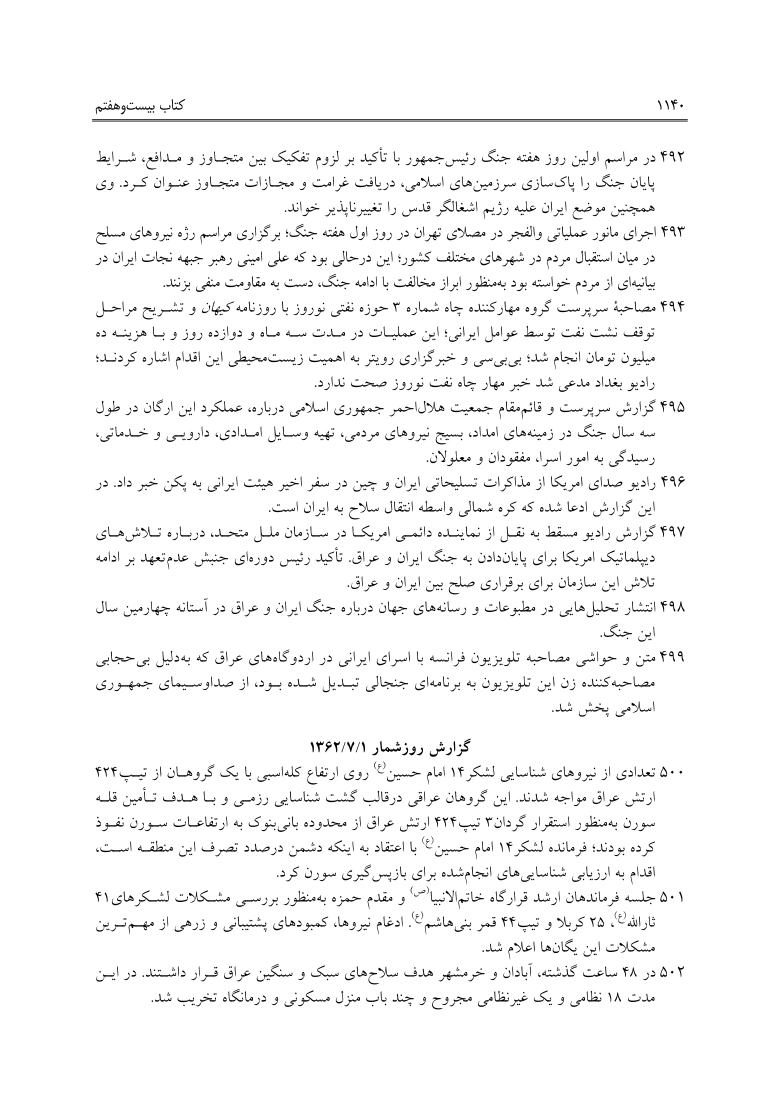 ۱۱۴۰ کتاب بیست‌وهفتم
۴۹۲ در مراسم اولین روز هفته جنگ رئیس‌جمهور با تأکید بر لزوم تفکیک بین متجاوز و مدافع، شرایط
پایان جنگ را پاک‌سازی سرزمین‌های اسلامی، دریافت غرامت و مجازات متجاوز عنوان کرد. وی
همچنین موضع ایران علیه رژیم اشغالگر قدس را تغییرناپذیر خواند.
۴۹۳ اجرای مانور عملیاتی والفجر در مصلای تهران در روز اول هفته جنگ؛ برگزاری مراسم رژه نیروهای مسلح
در میان استقبال مردم در شهرهای مختلف کشور؛ این درحالی بود که علی امینی رهبر جبهه نجات ایران در
بیانیه‌ای از مردم خواسته بود به‌منظور ابراز مخالفت با ادامه جنگ، دست به مقاومت منفی بزنند.
۴۹۴ مصاحبهٔ سرپرست گروه مهارکننده چاه شماره ۳ حوزه نفتی نوروز با روزنامه کیهان و تشریح مراحل
توقف نشت نفت توسط عوامل ایرانی؛ این عملیات در مدت سه ماه و دوازده روز و با هزینه ده
میلیون تومان انجام شد؛ بی‌بی‌سی و خبرگزاری رویتر به اهمیت زیست‌محیطی این اقدام اشاره کردند؛
رادیو بغداد مدعی شد خبر مهار چاه نفت نوروز صحت ندارد.
۴۹۵ گزارش سرپرست و قائم‌مقام جمعیت هلال‌احمر جمهوری اسلامی درباره، عملکرد این ارگان در طول
سه سال جنگ در زمینه‌های امداد، بسیج نیروهای مردمی، تهیه وسایل امدادی، دارویی و خدماتی،
رسیدگی به امور اسرا، مفقودان و معلولان.
۴۹۶ رادیو صدای امریکا از مذاکرات تسلیحاتی ایران و چین در سفر اخیر هیئت ایرانی به پکن خبر داد. در
این گزارش ادعا شده که کره شمالی واسطه انتقال سلاح به ایران است.
۴۹۷ گزارش رادیو مسقط به نقل از نماینده دائمی امریکا در سازمان ملل متحد، درباره تلاش‌های
دیپلماتیک امریکا برای پایان‌دادن به جنگ ایران و عراق. تأکید رئیس دوره‌ای جنبش عدم‌تعهد بر ادامه
تلاش این سازمان برای برقراری صلح بین ایران و عراق.
۴۹۸ انتشار تحلیل‌هایی در مطبوعات و رسانه‌های جهان درباره جنگ ایران و عراق در آستانه چهارمین سال
این جنگ.
۴۹۹ متن و حواشی مصاحبه تلویزیون فرانسه با اسرای ایرانی در اردوگاه‌های عراق که به‌دلیل بی‌حجابی
مصاحبه‌کننده زن این تلویزیون به برنامه‌ای جنجالی تبدیل شده بود، از صداوسیمای جمهوری
اسلامی پخش شد.
گزارش روزشمار ۱۳۶۲/۷/۱
۵۰۰ تعدادی از نیروهای شناسایی لشکر۱۴ امام حسین(ع) روی ارتفاع کله‌اسبی با یک گروهان از تیپ۴۲۴
ارتش عراق مواجه شدند. این گروهان عراقی درقالب گشت شناسایی رزمی و با هدف تأمین قله
سورن به‌منظور استقرار گردان۳ تیپ۴۲۴ ارتش عراق از محدوده بانی‌بنوک به ارتفاعات سورن نفوذ
کرده بودند؛ فرمانده لشکر۱۴ امام حسین(ع) با اعتقاد به اینکه دشمن درصدد تصرف این منطقه است،
اقدام به ارزیابی شناسایی‌های انجام‌شده برای بازپس‌گیری سورن کرد.
۵۰۱ جلسه فرماندهان ارشد قرارگاه خاتم‌الانبیا(ص) و مقدم حمزه به‌منظور بررسی مشکلات لشکرهای۴۱
ثارالله(ع)، ۲۵ کربلا و تیپ۴۴ قمر بنی‌هاشم(ع). ادغام نیروها، کمبودهای پشتیبانی و زرهی از مهم‌ترین
مشکلات این یگان‌ها اعلام شد.
۵۰۲ در ۴۸ ساعت گذشته، آبادان و خرمشهر هدف سلاح‌های سبک و سنگین عراق قرار داشتند. در این
مدت ۱۸ نظامی و یک غیرنظامی مجروح و چند باب منزل مسکونی و درمانگاه تخریب شد.